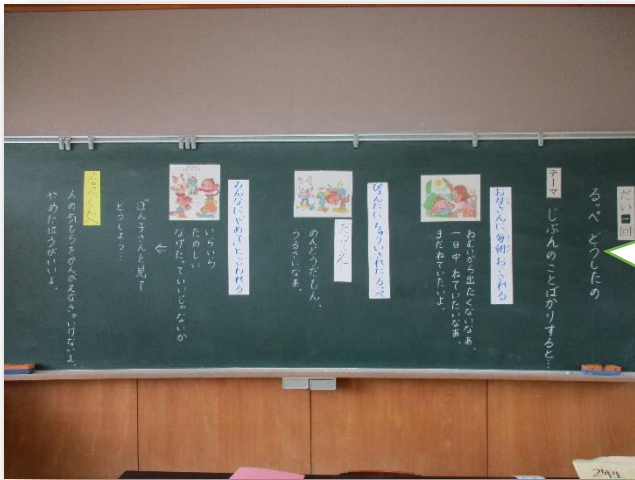 だい一回
るっぺ どうしたの
テーマ
じぶんのことばかりすると…
お母さんに毎朝おこされる
ねむいから出たくないなあ。
一日中ねていたいなあ。
まだねていたいよ。
ぴょんたにちゅういされたるっぺ
だってさ
めんどうだしん、
うるさいなあ。
みんなに「やめて」といわれる
いらいら
たのしい
なげたっていいじゃないか
←
ぽん子さんを見て
どうしよう…
るっぺくんへ
人の気もちをかんがえなきゃいけないよ。
やめたほうがいいよ。